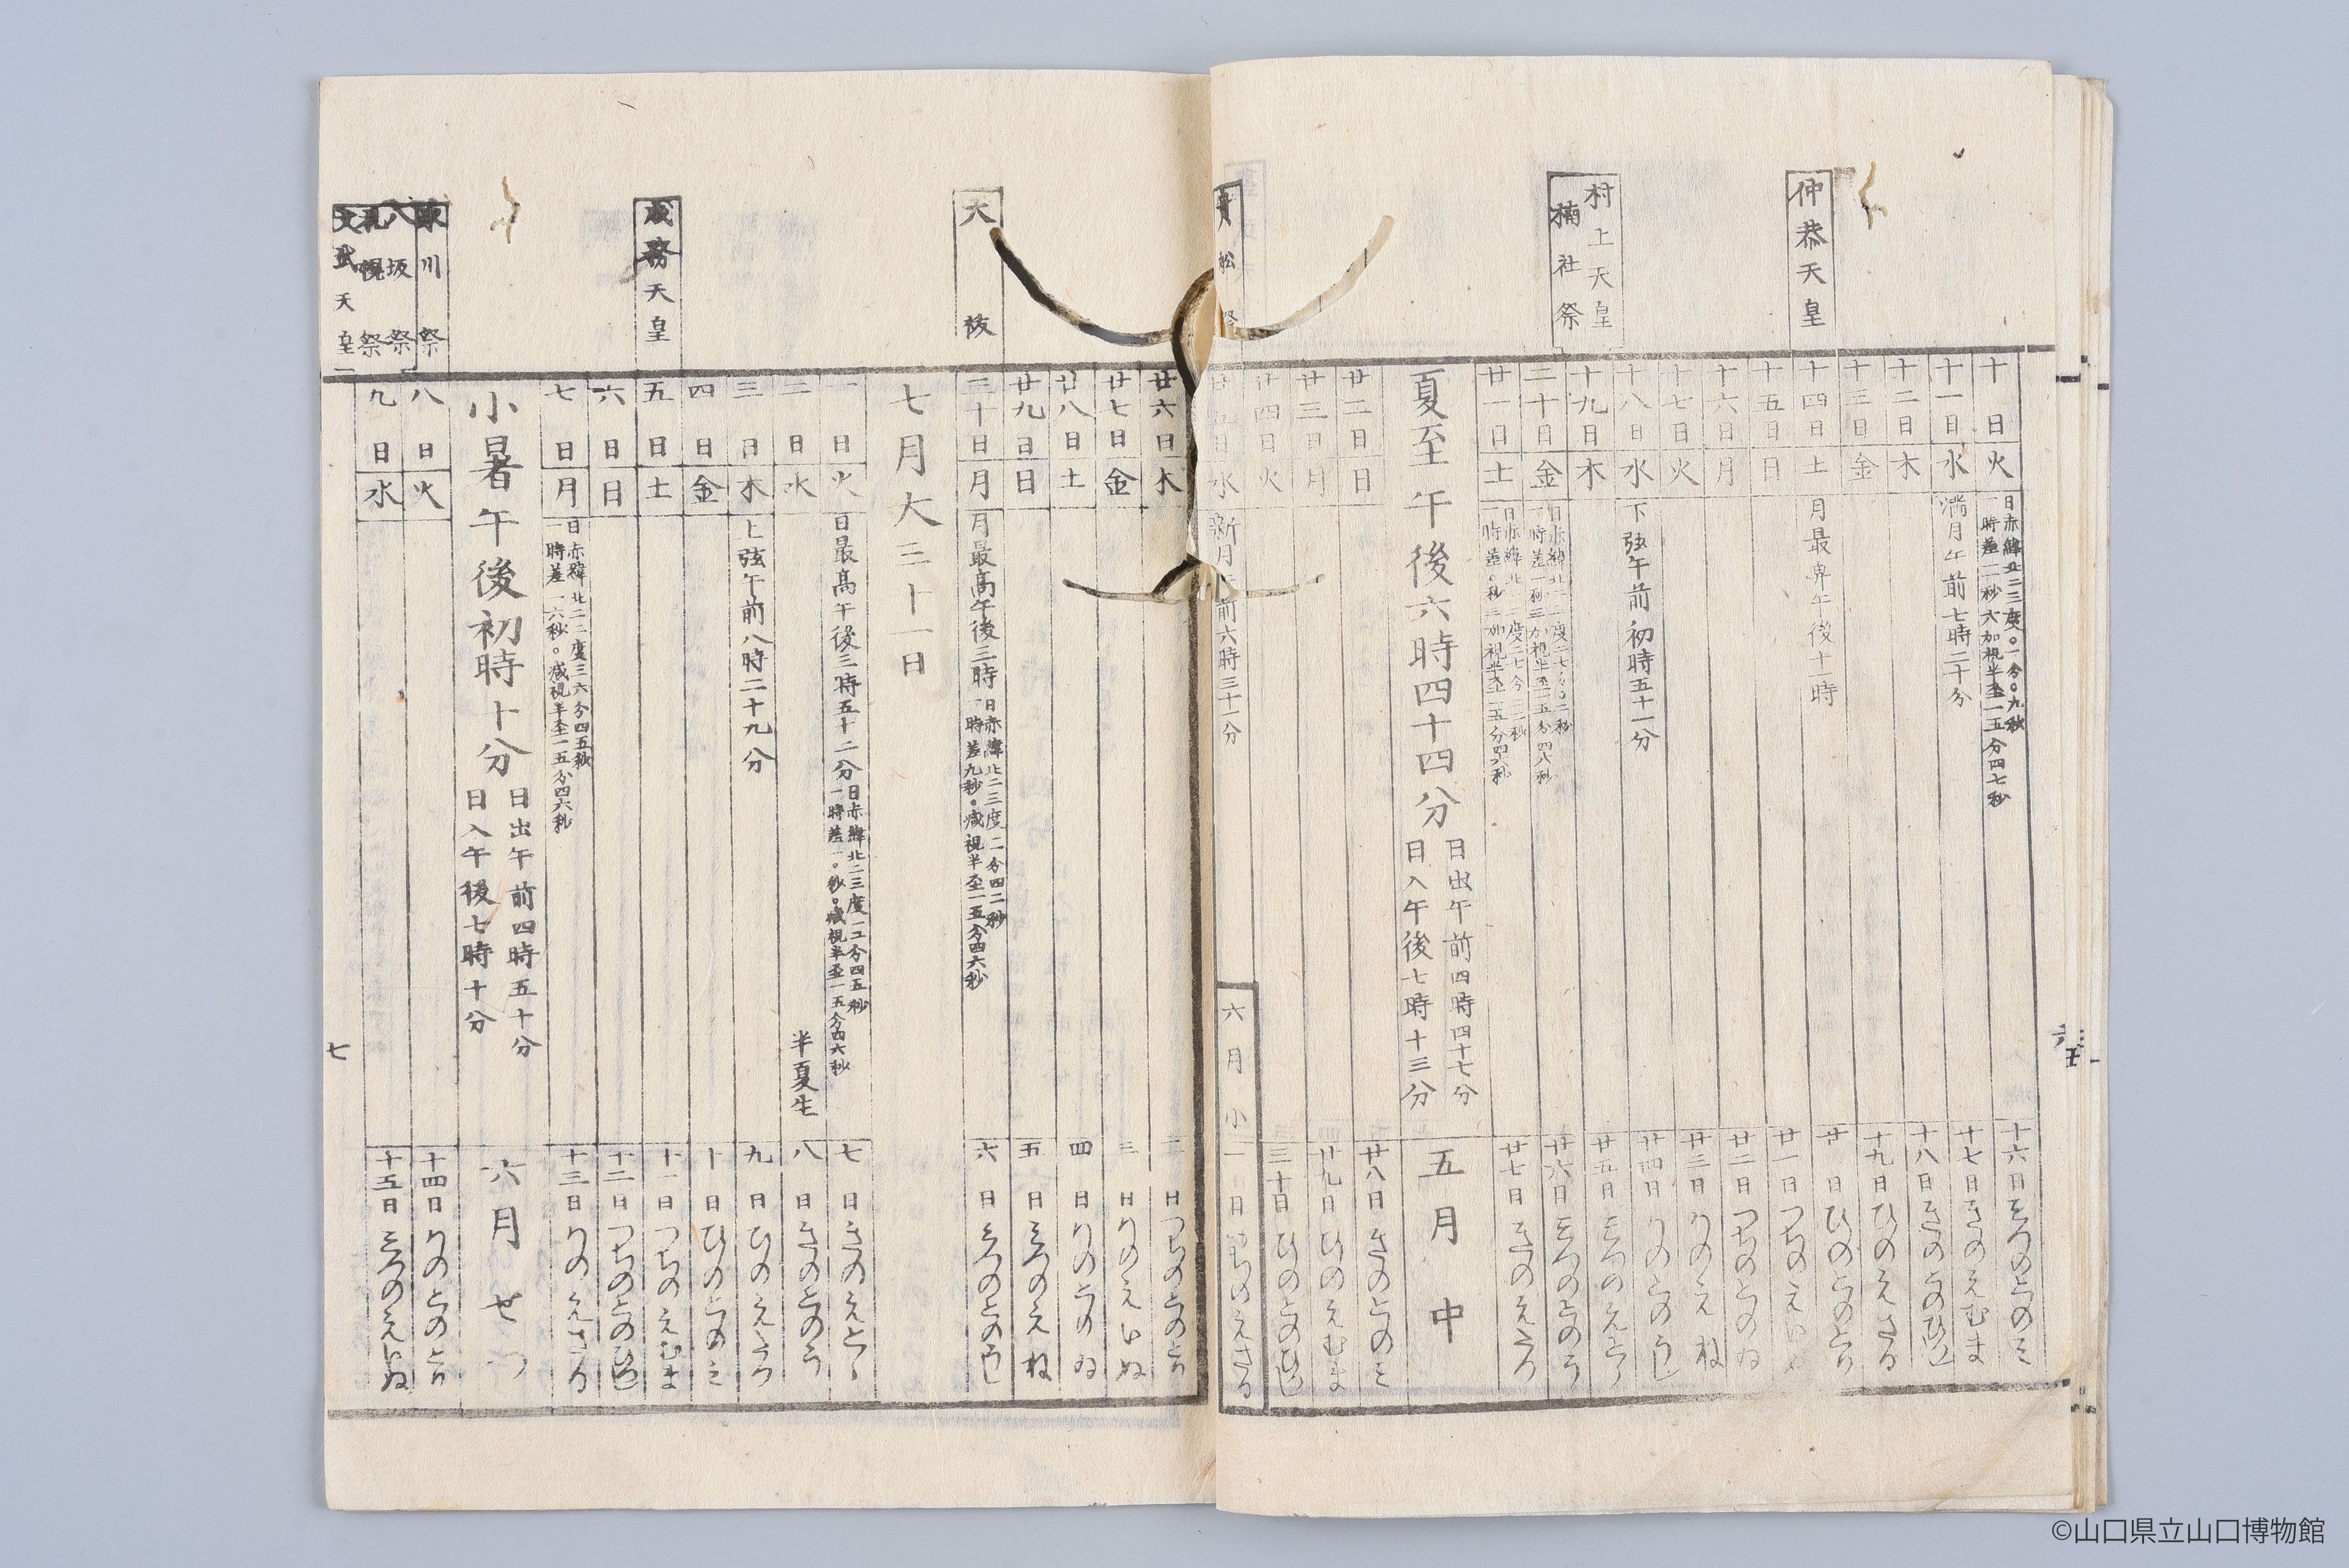 仲恭天皇
村上天皇
楠社祭
十日 火 日赤緯北二三度〇一分〇九秒
一時差一二秒六加視半至一五分四七秒 十六日 きのとのミ
十一日 水 満月午前七時二十分 十七日 きのえむま
十二日 木 十八日 きのとのひつし
十三日 金 十九日 ひのえさる
十四日 土 月最卑午後十一時 廿日 ひのとのとり
十五日 日 廿一日 つちのえいぬ
十六日 月 廿二日 つちのとのゐ
十七日 火 廿三日 かのえね
十八日 水 下弦午前初時五十一分 廿四日 かのとのうし
十九日 木 廿五日
二十日 金 廿六日
廿一日 土 廿七日 きのえたつ
夏至午後六時四十四分 日出午前四時四十七分
日入午後七時十三分 五月中
廿二日 日 廿八日 きのとのミ
廿三日 月 廿九日 ひのえむま
廿四日 火 三十日 ひのとのひつし
廿五日 水 新月午前六時三十一分 六月小 一日 つちのえさる
大祓
成務天皇
八坂祭
札幌祭
文武天皇
廿六日 木 二日 つちのとのとり
廿七日 金 三日 かのえいぬ
廿八日 土 四日 かのとのゐ
廿九日 日 五日 みつのえね
三十日 月 月最高午後三時 日赤緯北二三度一一分四二秒
一時差九秒〇減視半至一五分四六秒 六日 みつのとのうし
七月大三十一日
一日 火 日最高午後三時五十二分 七日 きのえとら
二日 水 半夏生 八日 きのとのう
三日 木 上弦午前八時二十九分 九日 ひのえたつ
四日 金 十日 ひのとのミ
五日 土 十一日 つちのえむま
六日 日 十二日 つちのとのひつし
七日 月 日赤緯北二二度三六分四五秒
一時差一六秒〇減視半至一五分四六秒 十三日 かのえさる
小暑午後初時十分 日出午前四時五十分
日入午後七時十分 六月せつ
八日 火 十四日 かのとのとり
九日 水 十五日 みつのえいぬ
七
©山口県立山口博物館